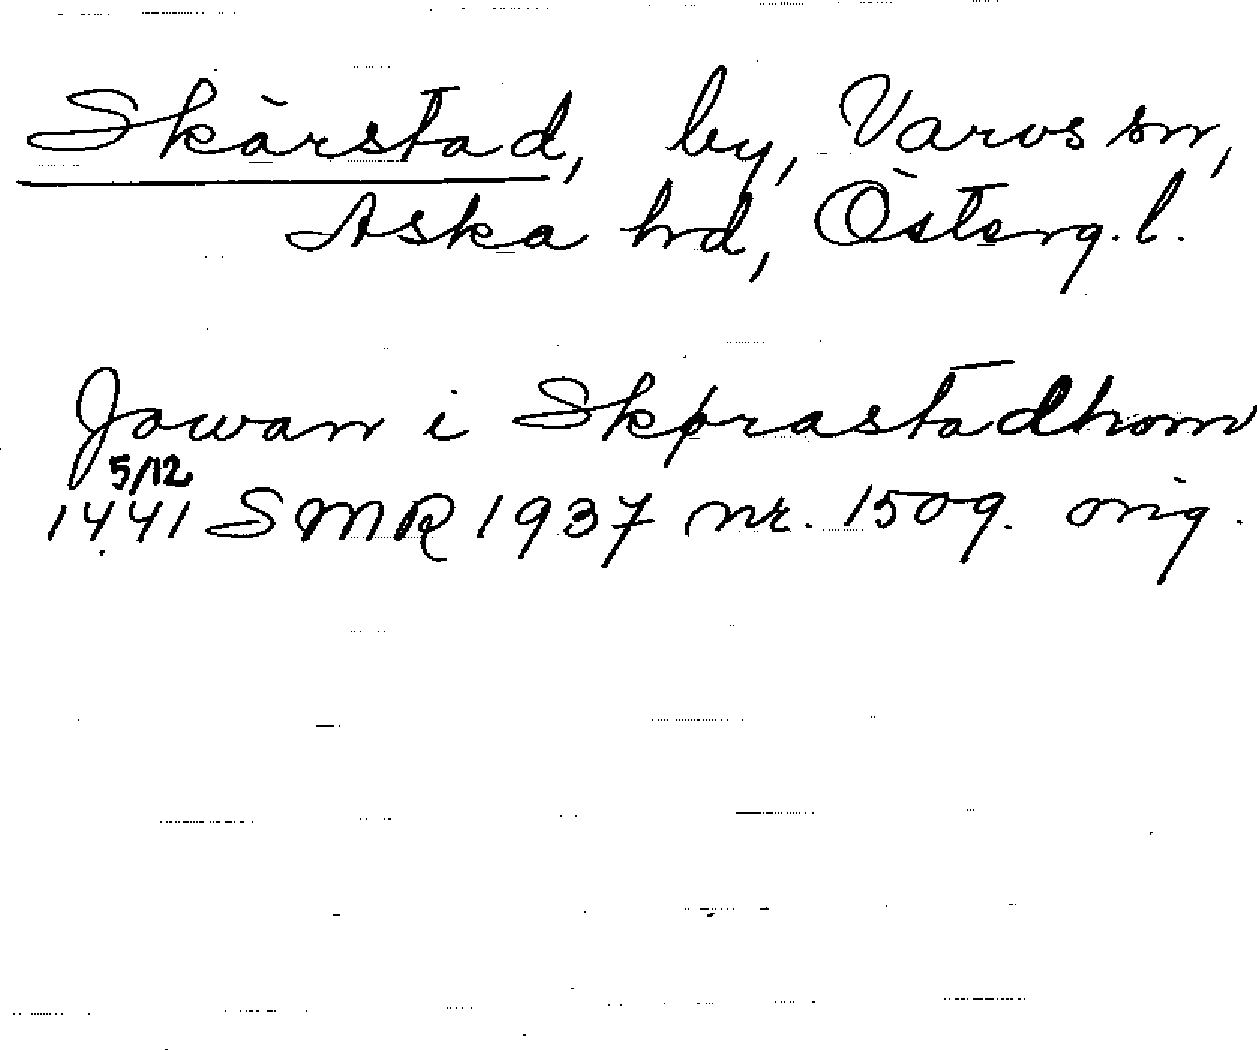 Skärstad, by, Varvs sn,
Aska hd, Österg.l.
Jowan i Skørastadhom
5/12
1441 SMR 1937 nr. 1509. orig.